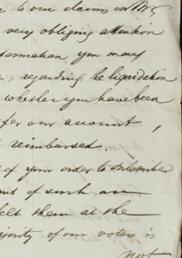 to our claims on Mr
very obliging attention
formation, you may
regarding the liquidation
whether you have been
for our account,
reimbursed.
of your order to subscribe
of such an
felt them at the
majority of our votes is